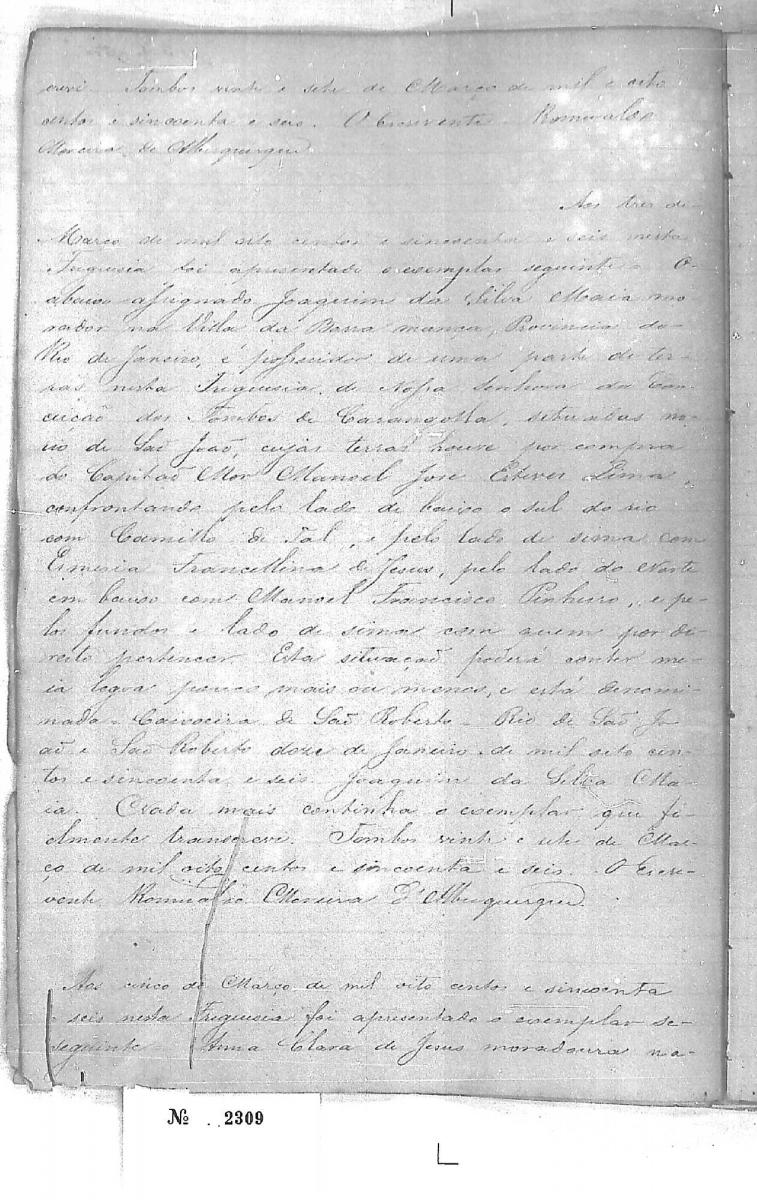 crevi. Tombos vinte e sete de Março de mil e oito
centos e sincoenta e seis. O Escrevente Romualdo
Moreira de Albuquerque
Aos tres de
Março de mil oito centos e sincoenta e seis nesta
Freguesia foi apresentado o exemplar seguinte - O
abaixo assignado Joaquim da Silva Maia mo-
rador na Villa da Barra mança, Provincia do
Rio de Janeiro, é possuidor de uma parte de ter-
ras nesta Freguesia de Nossa Senhora da Con-
ceicão dos Tombos de Carangolla, setuadas no
rio de Saõ João, cujas terras houve por compra
do Capitaõ Mor Manoel José Esteves Lima,
confrontando pelo lado de baixo o sul do rio
com Camillo de Tal, e pelo lado de sima com
Francellina de Jesus, pelo lado do Norte
em baixo com Manoel Francisco Pinheiro, e pe-
los fundos e lado de sima com quem por di-
reito pertencer. Esta situaçaõ poderá conter me-
ia legoa pouco mais ou menos, e está denomi-
nada - Caixoeira de Saõ Roberto - Rio de Saõ Jo-
aõ e Saõ Roberto doze de Janeiro de mil oito cen-
tos e sincoenta e seis. Joaquim da Silva Ma-
ia. E nada mais continha o exemplar que fi-
elmente transcrevi. Tombos vinte e sete de Mar-
ço de mil oito centos e sincoenta e seis. O Escre-
vente Romualdo Moreira d'Albuquerque.
Aos cinco de Março de mil oito centos e sincoenta
e seis nesta Freguesia foi apresentado o exemplar se-
seguinte - Anna Clara de Jesus moradoura na-
№ 2309